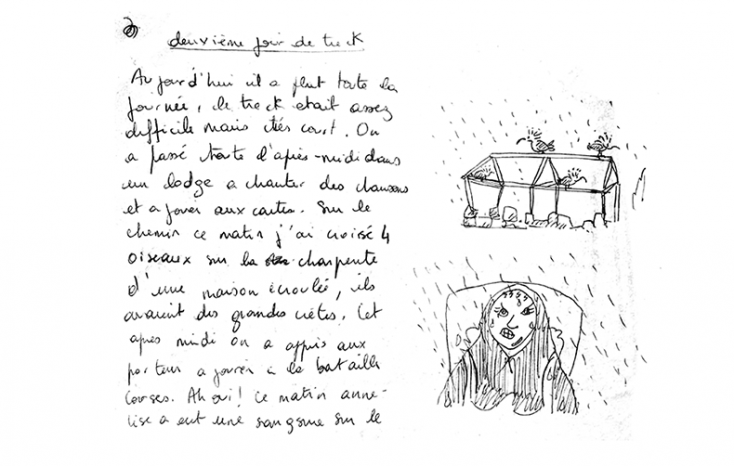 deuxième jour de treck
Aujourd'hui il a plut toute la
journée, le treck était assez
difficile mais très court. On
a passé toute l'après-midi dans
un lodge a chanter des chansons
et a jouer aux cartes. Sur le
chemin ce matin j'ai croisé 4
oiseaux sur la charpente
d'une maison écroulée, ils
avaient des grandes crètes. Cet
apres midi on a appris aux
porteurs a jouer a la bataille
corses. Ah oui! ce matin anne-
lise a eut une sangsue sur le